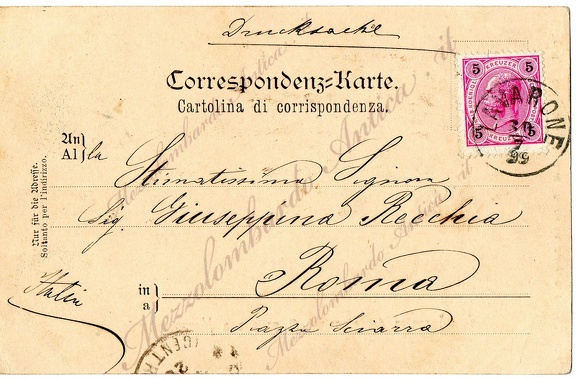 Drucksache
5 KREUZER 5
5 KREUZER 5
Correspondenz-Karte.
Cartolina di corrispondenza.
An
Al la Stimatissima Signora
Sig. Giuseppina Recchia
in
a Roma
Piazza Sciarra
Italia
Nur für die Adresse.
Soltanto per l'indirizzo.
99
CENTR
Mezzolombardo Antica .it
Mezzolombardo Antica .it
Mezzolombardo Antica .it